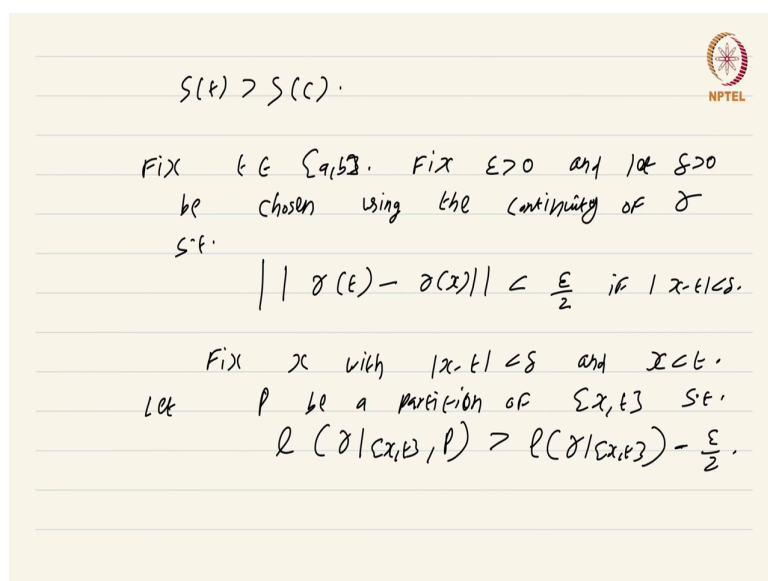 S(t) > S(c).
NPTEL
Fix t ∈ [a,b]. Fix ε>0 and let δ>0
be chosen using the continuity of γ
s.t.
||γ(t) - γ(x)|| < ε/2 if |x-t|<δ.
Fix x with |x-t|<δ and x<t.
Let P be a partition of [x,t] s.t.
ℓ(γ|[x,t], P) > ℓ(γ|[x,t]) - ε/2.